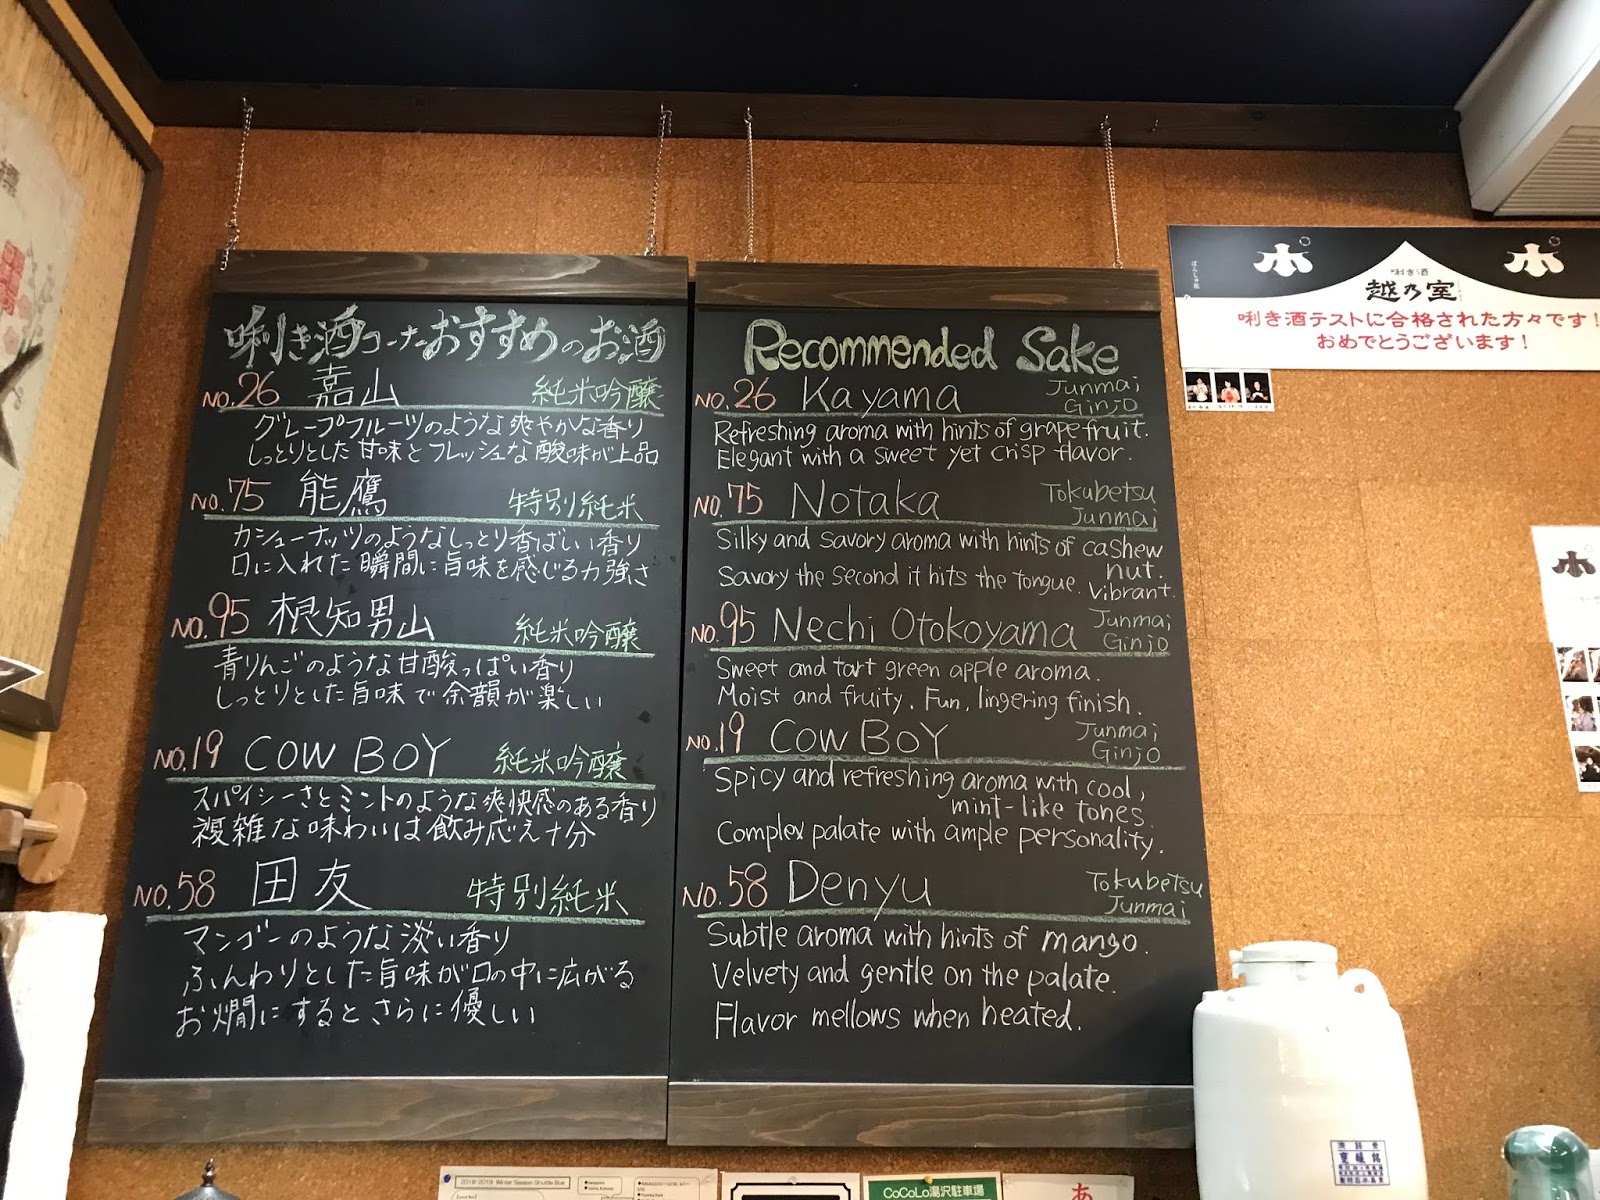 唎き酒コーナーおすすめのお酒
NO.26 嘉山 純米吟醸
グレープフルーツのような爽やかな香り
しっとりとした甘味とフレッシュな酸味が上品
NO.75 能鷹 特別純米
カシューナッツのようなしっとり香ばしい香り
口に入れた瞬間に旨味を感じる力強さ
NO.95 根知男山 純米吟醸
青りんごのような甘酸っぱい香り
しっとりとした旨味で余韻が楽しい
NO.19 COW BOY 純米吟醸
スパイシーさとミントのような爽快感のある香り
複雑な味わいは飲み応え十分
NO.58 田友 特別純米
マンゴーのような淡い香り
ふんわりとした旨味が口の中に広がる
お燗にするとさらに優しい
Recommended Sake
NO.26 Kayama Junmai Ginjo
Refreshing aroma with hints of grapefruit.
Elegant with a sweet yet crisp flavor.
NO.75 Notaka Tokubetsu Junmai
Silky and savory aroma with hints of cashew
nut.
Savory the second it hits the tongue. Vibrant.
NO.95 Nechi Otokoyama Junmai Ginjo
Sweet and tart green apple aroma.
Moist and fruity. Fun, lingering finish.
NO.19 COW BOY Junmai Ginjo
Spicy and refreshing aroma with cool,
mint-like tones.
Complex palate with ample personality.
NO.58 Denyu Tokubetsu Junmai
Subtle aroma with hints of mango.
Velvety and gentle on the palate.
Flavor mellows when heated.
ぽんしゅ館
唎き酒
越乃室
唎き酒テストに合格された方々です!
おめでとうございます!
2018-2019 Winter Season Shuttle Bus
CoCoLo湯沢駐車場
あ